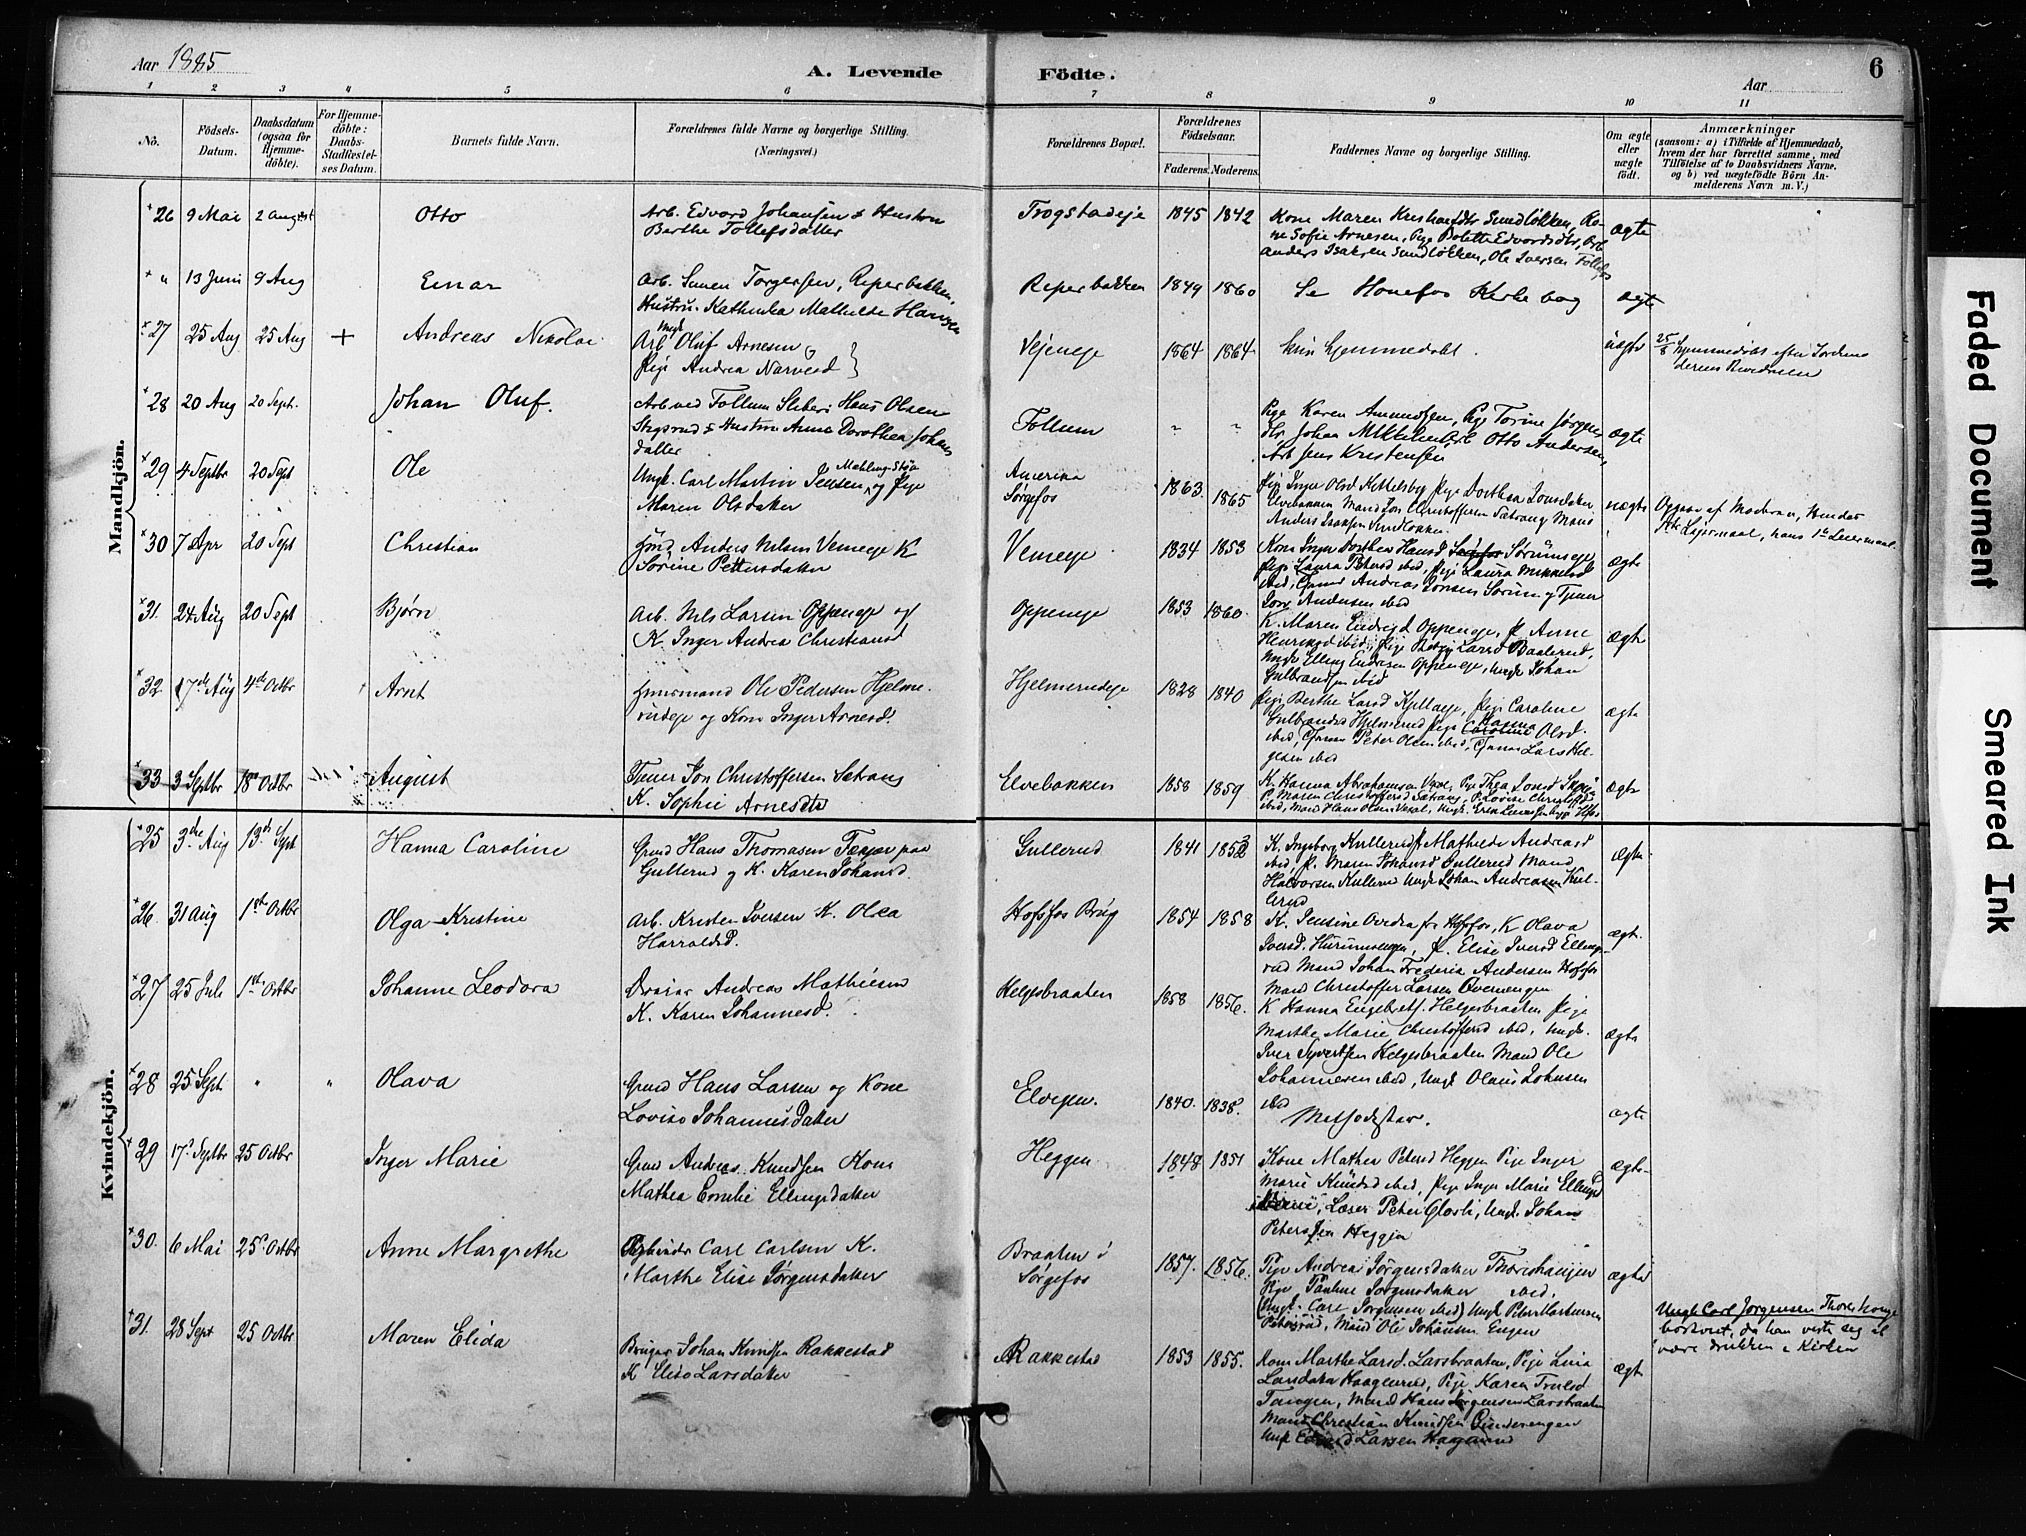 Aar 1885
A. Levende
Födte.
Aar
6
1 2 3 4 5 6 7 8 9 10 11
No.
Födsels-
Datum.
Daabsdatum
(ogsaa for
Hjemme-
döbte).
For Hjemme-
döbte:
Daabs-
Stadfæstel-
ses Datum.
Barnets fulde Navn.
Forældrenes fulde Navne og borgerlige Stilling.
(Næringsvei.)
Forældrenes Bopæl.
Forældrenes
Födselsaar.
Faderens. Moderens.
Faddernes Navne og borgerlige Stilling.
Om ægte
eller
uægte
födt.
Anmærkninger
(saasom: a) i Tilfælde af Hjemmedaab,
hvem der har forrettet samme, med
Tilföielse af to Daabsvidners Navne.
og b) ved uægtefödte Börn An-
melderens Navn m. V.)
Mandkjön.
26 9 Mai 2 August Otto
Arb. Edvard Johansen & Hustru
Berthe Tollefsdatter
Trogstadeje 1845 1842
Kone Maren Sundløkken, Ko-
ne Sofie Arnesen, Pige Bolette Edvardsdtr, Arb.
Anders Isaksen Sundløkken, Ole Iversen
ægte
" 13 Juni 9 Aug Einar
Arb. Simen Torgersen, Reperbakken,
Hustru Kathinka Mathilde Hansen
Reperbakken 1849 1860 Se Hønefos Kirkebog ægte
27 25 Aug 25 Aug + Andreas Nikolai
Ungk
Arb Oluf Arnesen
Pige Andrea Narverd
Vejeneje 1864 1864 kun hjemmedøbt. uægte
25/8 hjemmedøbt efter Jordemo
deren
28 20 Aug 20 Sept. Johan Oluf.
Arb ved Follum Sliberi Hans Olsen
Stysrud & Hustru Anne Dorothea Johans
datter
Follum " "
Pige Karen Amundsen, Pige Torine Jørgens
dtr Johan Mikkelsen Arb Otto Andersen,
Arb Jens Kristensen
ægte
29 4 Septbr 20 Sept Ole
Ungk. Carl Martin Jensen og Pige
Maren Olsdatter
Amerika
Sørgefos
1863 1865
Pige Inger Olsd Kittelsby Pige Dorthea Jonsdatter
Elvebakken Mand Jon Christoffersen Sætrang Mand
Anders Isaksen Sundløkken
uægte
Opgave af Moderen, Hendes
Lejermaal, hans 1ste Leiermaal.
30 7 Apr 20 Sept Christian
Gmd Anders Nilsen Vemeeje K
Torine Pettersdatter
Vemeeje 1834 1853
Kone Inger Dorthea Hansd Sørumseje
Pige Laura Petersd ibid, Pige Laura Mikkelsd
ibid, Andreas Jonsen Sørum og Tjener
Jon Andersen ibid
ægte
31. 24 Aug 20 Sept Bjørn
Arb. Nils Larsen Oppeneje og
K. Inger Andrea Christiansd
Oppeneje 1853 1860.
K. Maren Oppeneje, P Anne
Larsd Baalerud,
Ungk Elling Endresen Oppeneje, Ungk Johan
Gulbrandsen ibid
ægte
32. 17de Aug 4de Octbr Arnt
Husmand Ole Pedersen Hjelme-
rudeje og Kone Inger Arnesd.
Hjelmerudeje 1828 1840
Pige Berthe Larsd Pige Caroline
Gulbrandsd Hjelmerud Pige Hanna Caroline Olsd.
ibid, Peter Olsen ibid, Lars Hel-
gesen ibid
ægte
33 3 Septbr 18 Octbr August
Tjener Jon Christoffersen Sætrang
K. Sophie Arnesdtr
Elvebakken 1858 1859
K. Hanna Abrahamsen Vexal, Pige Thea Jonsd
P. Maren Christoffersd Sætrang, P Lovise Christoffersd
ibid, Mand Hans Olsen Vexal, Ungk.
ægte
Kvindekjön.
25 3die Aug 13de Sept Hanna Caroline
Gmd Hans Thomasen paa
Gullerud og K. Karen Johansd.
Gullerud 1841 1852
K. Ingeborg Kullerud P Mathilde Andreasd
ibid, P. Maren Johansd Gullerud Mand
Halvorsen Kullerud Ungk Johan Andreasen Kul-
lerud
ægte
26. 31 Aug 1ste Octbr Olga Kristine
Arb. Kristen Iversen K. Olea
Harraldsd.
Hofsfos Brug 1854 1858
K. Jensine Hofsfos, K Olava
Iversd. P. Elise Iversd Ellings-
rud Mand Johan Frederik Andersen Hofsfos
Mand Christoffer Larsen Øverengen
ægte.
27 25 Juli 1ste Octbr Johanne Leodora
Andreas Mathiesen
K. Karen Johannesd.
Helgesbraaten 1858 1856.
K Hanna Engebrets. Helgesbraaten Pige
Marthe Marie Christoffersd ibid, Ungk.
Iver Syvertsen Helgesbraaten Mand Ole
Johannesen ibid, Ungk Olaus Johnsen
ibid
ægte
28 25 Sept. " " Olava
Gmd Hans Larsen og Kone
Lovise Johannesdatter
Elvejen. 1840. 1838. Methodister. ægte
29 17 Septbr 25 Octbr Inger Marie
Gmd Andreas Knudsen Kone
Mathea Emilie Ellingsdatter
Heggen 1848 1851
Kone Mathea Petersd Heggen Pige Inger
Marie Knudsd ibid, Pige Inger Marie Ellingsd
Lærer Peter Ungk. Johan
Petersen Heggen
ægte
30. 6 Mai 25 Octbr Anne Margrethe
Carl Carlsen K.
Marthe Elise Jørgensdatter
Braaten i
Sørgefos
1857. 1856.
Pige Andrea Jørgensdatter Thoreshaugen
Pige Pauline Jørgensdatter ibid.
(Ungk. Carl Jørgensen ibid) Ungk Peter Martinsen
Petersrud, Mand Ole Johansen Engen
ægte
Ungk Carl Jørgensen Thoreshauge
bortvist, da han viste sig at
være drukken i Kirken
31. 28 Sept 25 Octbr Maren Elida
Bruger Johan Knudsen Rakkestad
K Elise Larsdatter
Rakkestad 1853 1855.
Kone Marthe Larsd. Larsbraaten, Pige Lina
Larsdatter Haagenrud, Pige Karen Trulsd
Tangen, Mand Hans Jørgensen Larsbraaten
Mand Christian Knudsen Gunderengen
Ungk Edvard Larsen
ægt
Faded Document
Smeared Ink